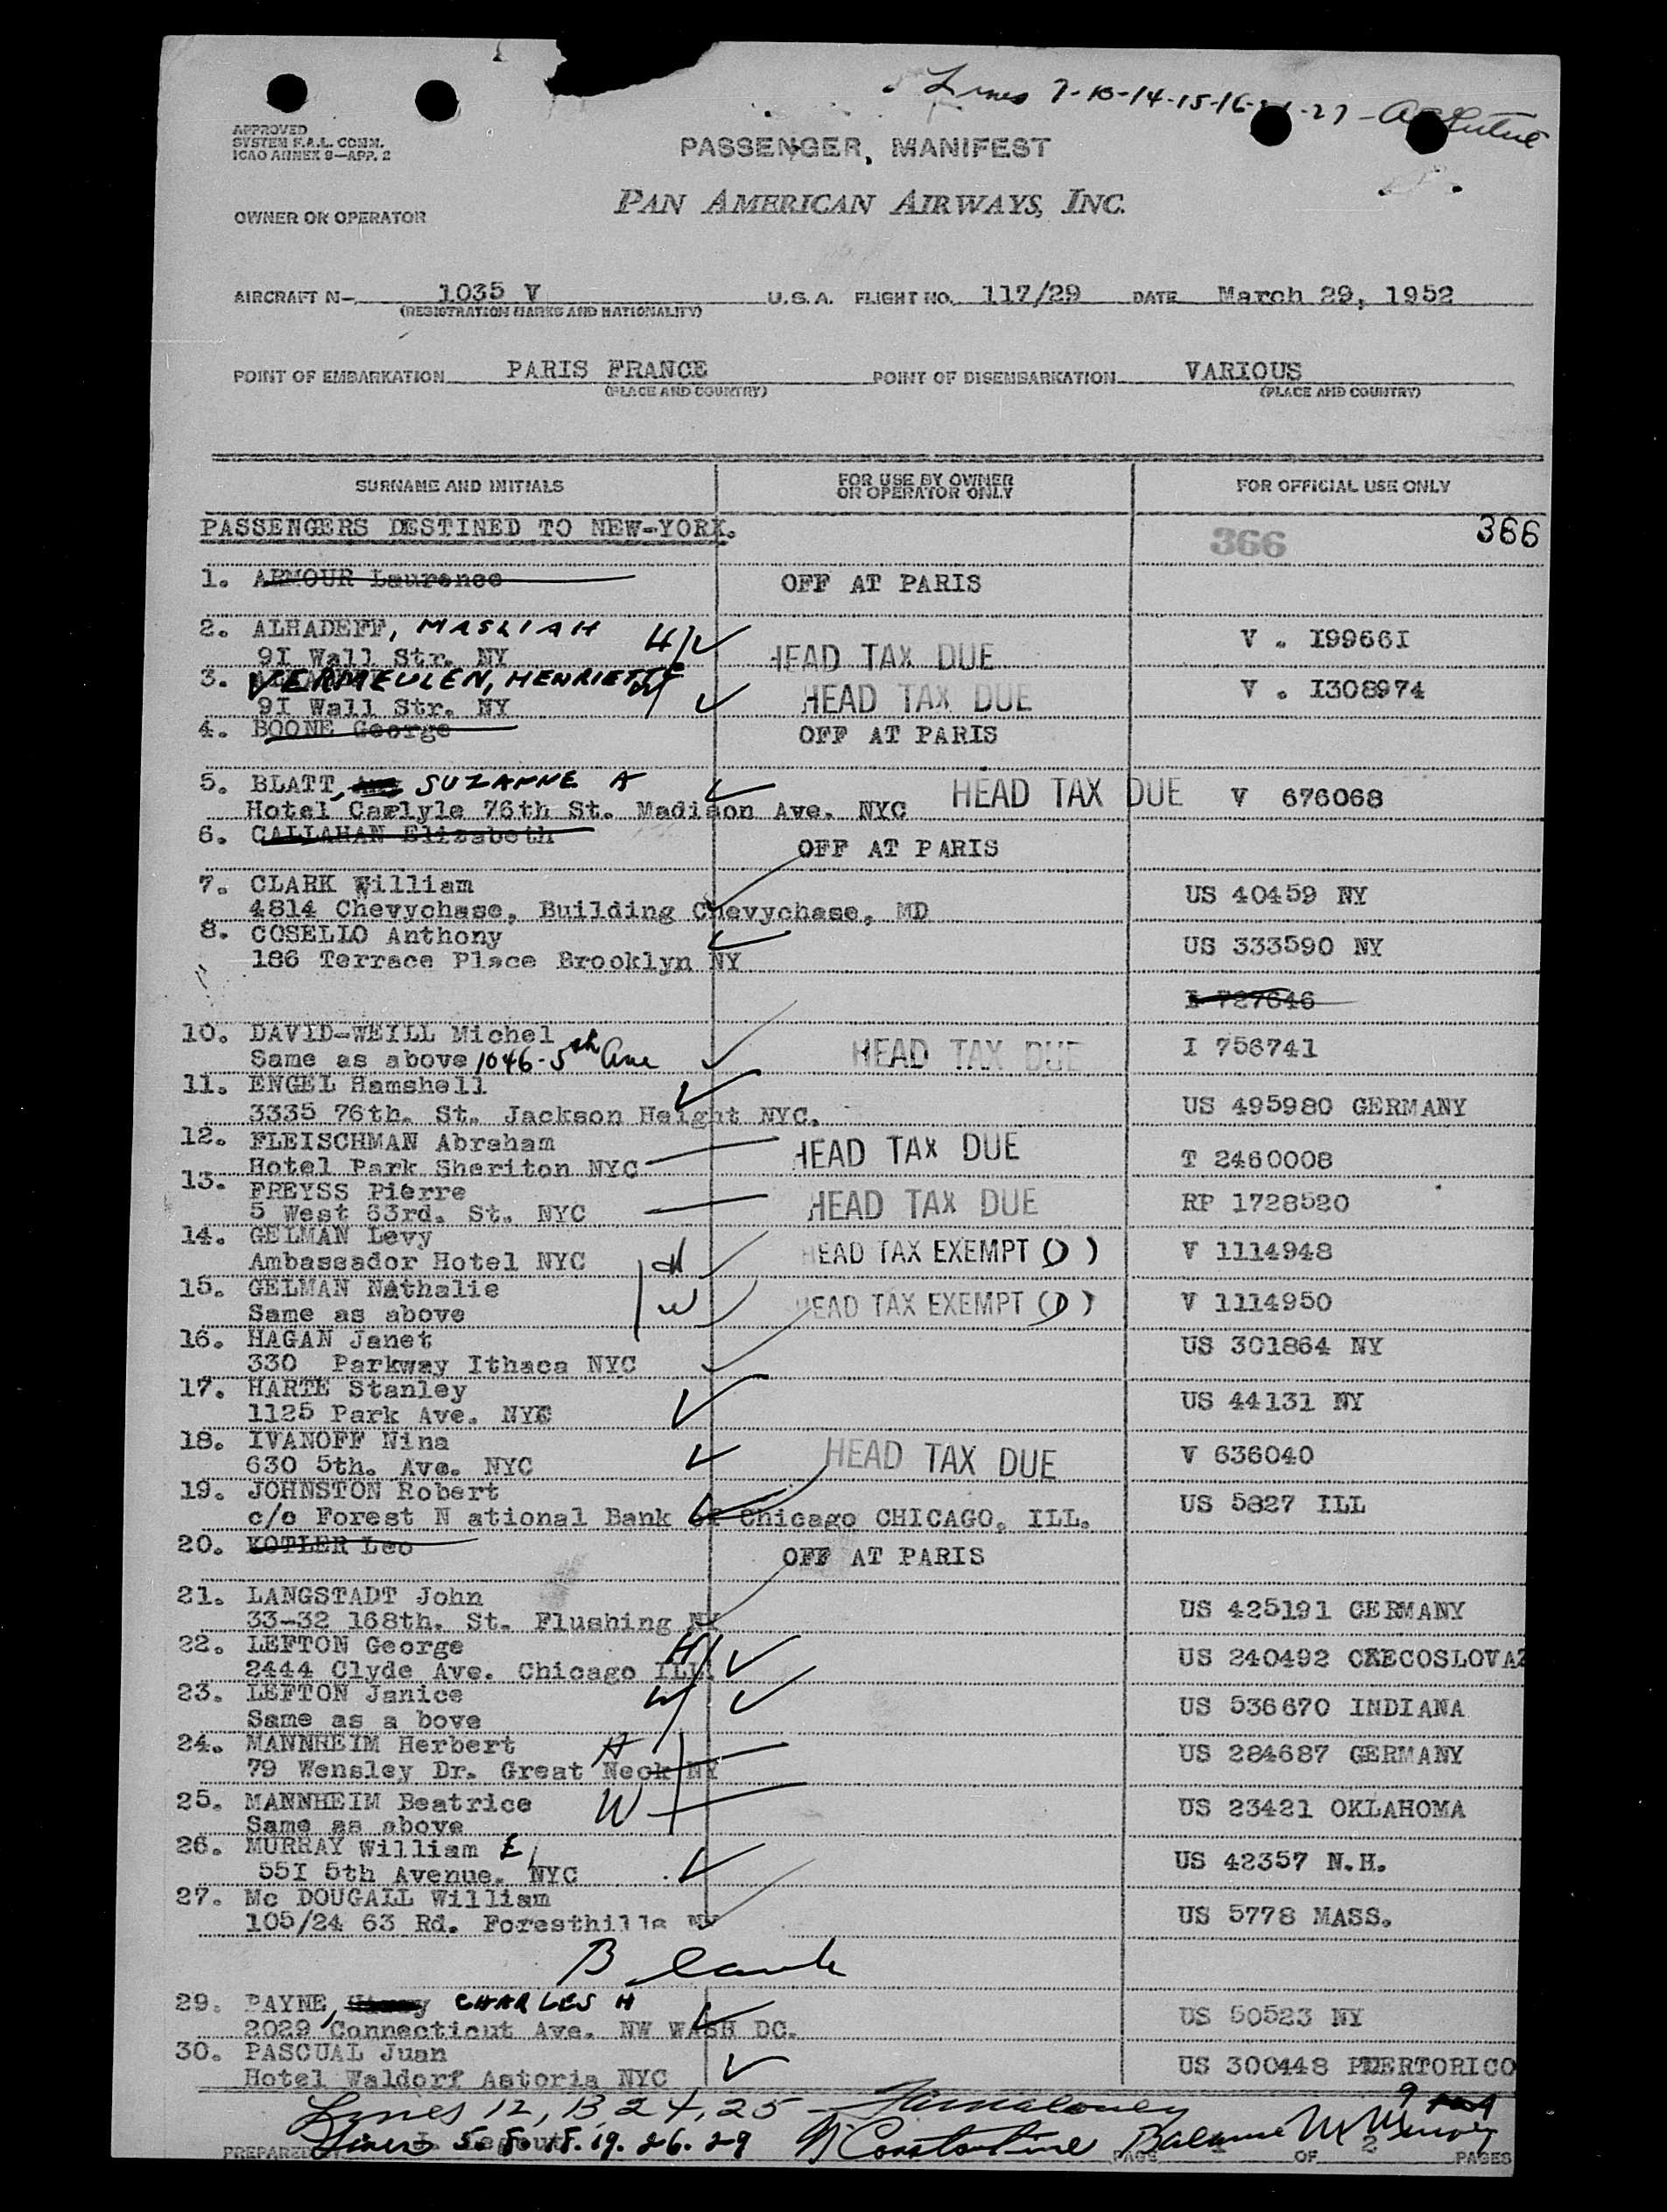 Lines 7-10-14-15-16-21-27-
APPROVED
SYSTEM F.A.L. COMM.
ICAO ANNEX 9—APP. 2
PASSENGER MANIFEST
OWNER OR OPERATOR
PAN AMERICAN AIRWAYS, INC.
AIRCRAFT N- 1035 V U.S.A. FLIGHT NO. 117/29 DATE March 29, 1952
(REGISTRATION MARKS AND NATIONALITY)
POINT OF EMBARKATION PARIS FRANCE POINT OF DISEMBARKATION VARIOUS
(PLACE AND COUNTRY) (PLACE AND COUNTRY)
SURNAME AND INITIALS FOR USE BY OWNER OR OPERATOR ONLY FOR OFFICIAL USE ONLY
PASSENGERS DESTINED TO NEW-YORK. 366 366
1. ARMOUR Laurence OFF AT PARIS
2. ALHADEFF, MASLIAH H V . I9966I
9I Wall Str. NY HEAD TAX DUE
3. VERMEULEN, HENRIETTE W V . I308974
9I Wall Str. NY HEAD TAX DUE
4. BOONE George OFF AT PARIS
5. BLATT, SUZANNE A HEAD TAX DUE V 676068
Hotel Carlyle 76th St. Madison Ave. NYC
6. CALLAHAN Elizabeth OFF AT PARIS
7. CLARK William US 40459 NY
4814 Chevychase, Building Chevychase, MD
8. COSELLO Anthony US 333590 NY
186 Terrace Place Brooklyn NY
I 727646
10. DAVID-WEILL Michel I 756741
Same as above 1046-5th Ave HEAD TAX DUE
11. ENGEL Hamshell US 495980 GERMANY
3335 76th. St. Jackson Height NYC.
12. FLEISCHMAN Abraham HEAD TAX DUE T 2460008
Hotel Park Sheriton NYC
13. FREYSS Pierre HEAD TAX DUE RP 1728520
5 West 63rd. St. NYC
14. GELMAN Levy HEAD TAX EXEMPT (D) V 1114948
Ambassador Hotel NYC H
15. GELMAN Nathalie HEAD TAX EXEMPT (D) V 1114950
Same as above W
16. HAGAN Janet US 301864 NY
330 Parkway Ithaca NYC
17. HARTE Stanley US 44131 NY
1125 Park Ave. NYC
18. IVANOFF Nina HEAD TAX DUE V 636040
630 5th. Ave. NYC
19. JOHNSTON Robert US 5827 ILL
c/o Forest N ational Bank of Chicago CHICAGO, ILL.
20. KOTLER Leo OFF AT PARIS
21. LANGSTADT John US 425191 GERMANY
33-32 168th. St. Flushing NY
22. LEFTON George H US 240492 CZECOSLOVAZ
2444 Clyde Ave. Chicago ILL.
23. LEFTON Janice W US 536670 INDIANA
Same as a bove
24. MANNHEIM Herbert H US 284687 GERMANY
79 Wensley Dr. Great Neck NY
25. MANNHEIM Beatrice W US 23421 OKLAHOMA
Same as above
26. MURRAY William E, US 42357 N.H.
55I 5th Avenue. NYC
27. Mc DOUGALL William US 5778 MASS.
105/24 63 Rd. Foresthills NY
Blank
29. PAYNE, CHARLES H US 50523 NY
2029 Connecticut Ave. NW WASH DC.
30. PASCUAL Juan US 300448 PUERTORICO
Hotel Waldorf Astoria NYC
Lines 12, 13, 24, 25 -
Lines 5. 8. 18. 19. 26. 29 Constantine Balance
PREPARED PAGE OF 2 PAGES